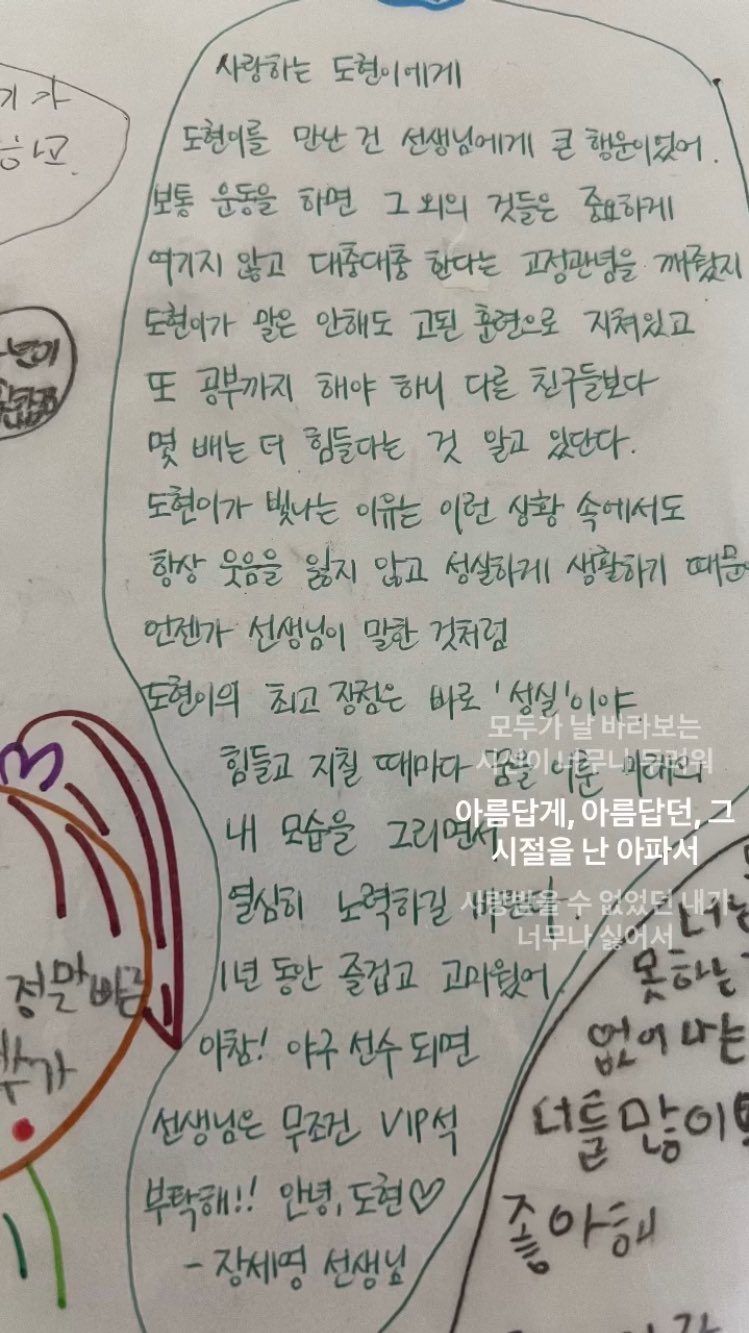 사랑하는 도현이에게
도현이를 만난 건 선생님에게 큰 행운이었어.
보통 운동을 하면 그 외의 것들은 중요하게
여기지 않고 대충대충 한다는 고정관념을 깨줬지
도현이가 말은 안해도 고된 훈련으로 지쳐있고
또 공부까지 해야 하니 다른 친구들보다
몇 배는 더 힘들다는 것 알고 있단다.
도현이가 빛나는 이유는 이런 상황 속에서도
항상 웃음을 잃지 않고 성실하게 생활하기 때문
언젠가 선생님이 말한 것처럼
도현이의 최고 장점은 바로 '성실'이야.
힘들고 지칠 때마다 꿈을 이룬 미래의
내 모습을 그리면서
열심히 노력하길 바란다.
1년 동안 즐겁고 고마웠어
아참! 야구 선수 되면
선생님은 무조건 VIP석
부탁해!! 안녕, 도현♡
- 장세영 선생님
모두가 날 바라보는
시선이 너무나 두려워
아름답게, 아름답던, 그
시절을 난 아파서
사랑받을 수 없었던 내가
너무나 싫어서
정말 빠른
못하는
없어 나는
너를 많이
좋아해